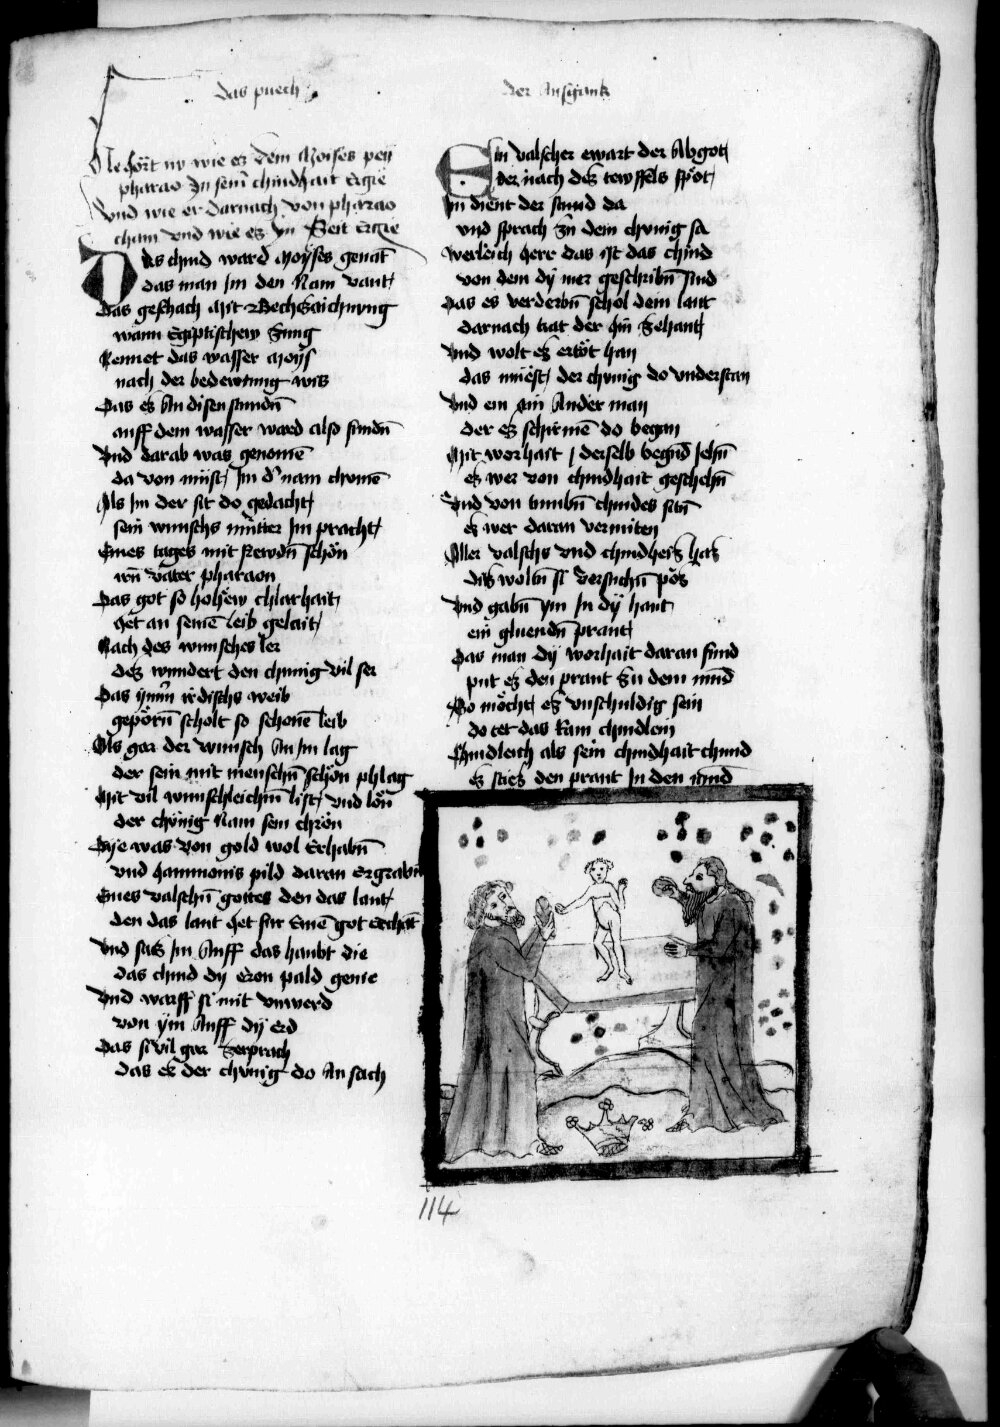 das puech
der Ausgank
Nie hört nv wie ez dem Moises peÿ
pharao In sein chindhait Ergie
Vnd wie er darnach von pharao
cham vnd wie ez Im Seit Ergie
Das chind ward Moÿses genāt
das man Im den Nam vant
Das geschach Mit Bechzaichnvng
wann Egiptischew Zung
Nennet das wasser Moÿs
nach der bedewtung wis
Das ez An disen stundn̄
auff dem wasser ward also fundn̄
Vnd darab was genomē
da von müst Im d' nam chomē
Als Im der sit do gedacht
sein wunschs mütter Im pracht
Eines tages mit frewdn̄ schön
irm̄ vater pharaon
Das got so hohew chlarhait
Het an seinē leib gelait
Nach des wunsches ler
dez wundert den chunig vil ser
Das ÿmm̄ irdischs weib
gepörn̄ scholt so schonē leib
Als gar der wunsch An Im lag
der sein mit menschn̄ schön phlag
Mit vil wunschleichm̄ list vnd lön̄
der chünig Nam sein chrön
Dÿe was von gold wol Erhabn̄
vnd Hammonis pild daran ergrabn̄
Eines valschn̄ gottes den das lant
den das lant Het fur Einē got Erchāt
Vnd satz Im Auff das haubt die
das chind dÿ eron pald genie
Vnd warff si mit vnwerd
von ÿm Auff dÿ erd
Das si vil gar Zerprach
das ee der chünig do An sach
Ein valscher ewart der Abgot
der nach dez tewffels spot
Im dient der stuend da
vnd sprach Zu dem chvnig sa
Werleich Herr das ist das chind
von dem dÿ mer geschribn̄ sind
Das es verderbn̄ schol dem lant
darnach trat der hin Zehant
Vnd wolt ez ertöt han
das müest der chvnig do vnderstan
Vnd ein ein Ander man
der ez schirmē do began
Mit worhait derselb begūd iehn̄
ez wer von chindhait geschehn̄
Vnd von tumbn̄ chindes sitn̄
ez wer daran vermiten
Aller valschs vnd chindheiz haz
ditz woltn̄ si versuchn̄ pöz
Vnd gabn̄ ÿm In dÿ hant
ein gluendn̄ prant
Das man dÿ worhait daran fund
put ez den prant Zu dem mūd
So möcht ez vnschuldig sein
do tet das Rain chindlein
Chindleich als sein chindhait chund
Ez stiez den prant In den mūd
114